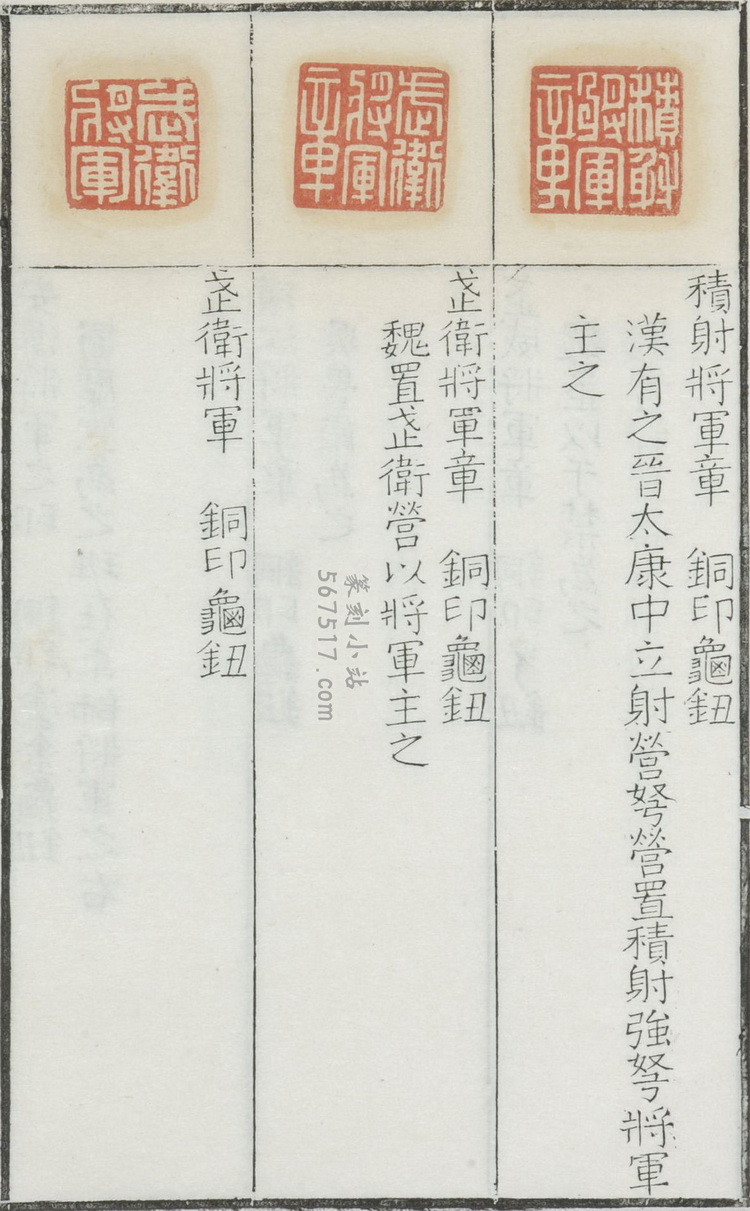 積射將軍章
積射將軍章　銅印龜鈕
漢有之晉太康中立射營弩營置積射強弩將軍
主之
武衛將軍章
武衛將軍章　銅印龜鈕
魏置武衛營以將軍主之
武衛將軍
武衛將軍　銅印龜鈕
篆刻小站
567517.com